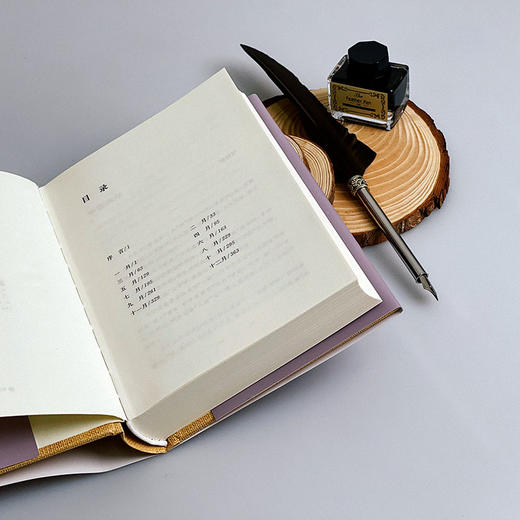 目 录
序 言/1
一 月/1
二 月/33
三 月/65
四 月/95
五 月/129
六 月/163
七 月/195
八 月/229
九 月/261
十 月/295
十一月/329
十二月/363
The
Feather Pen